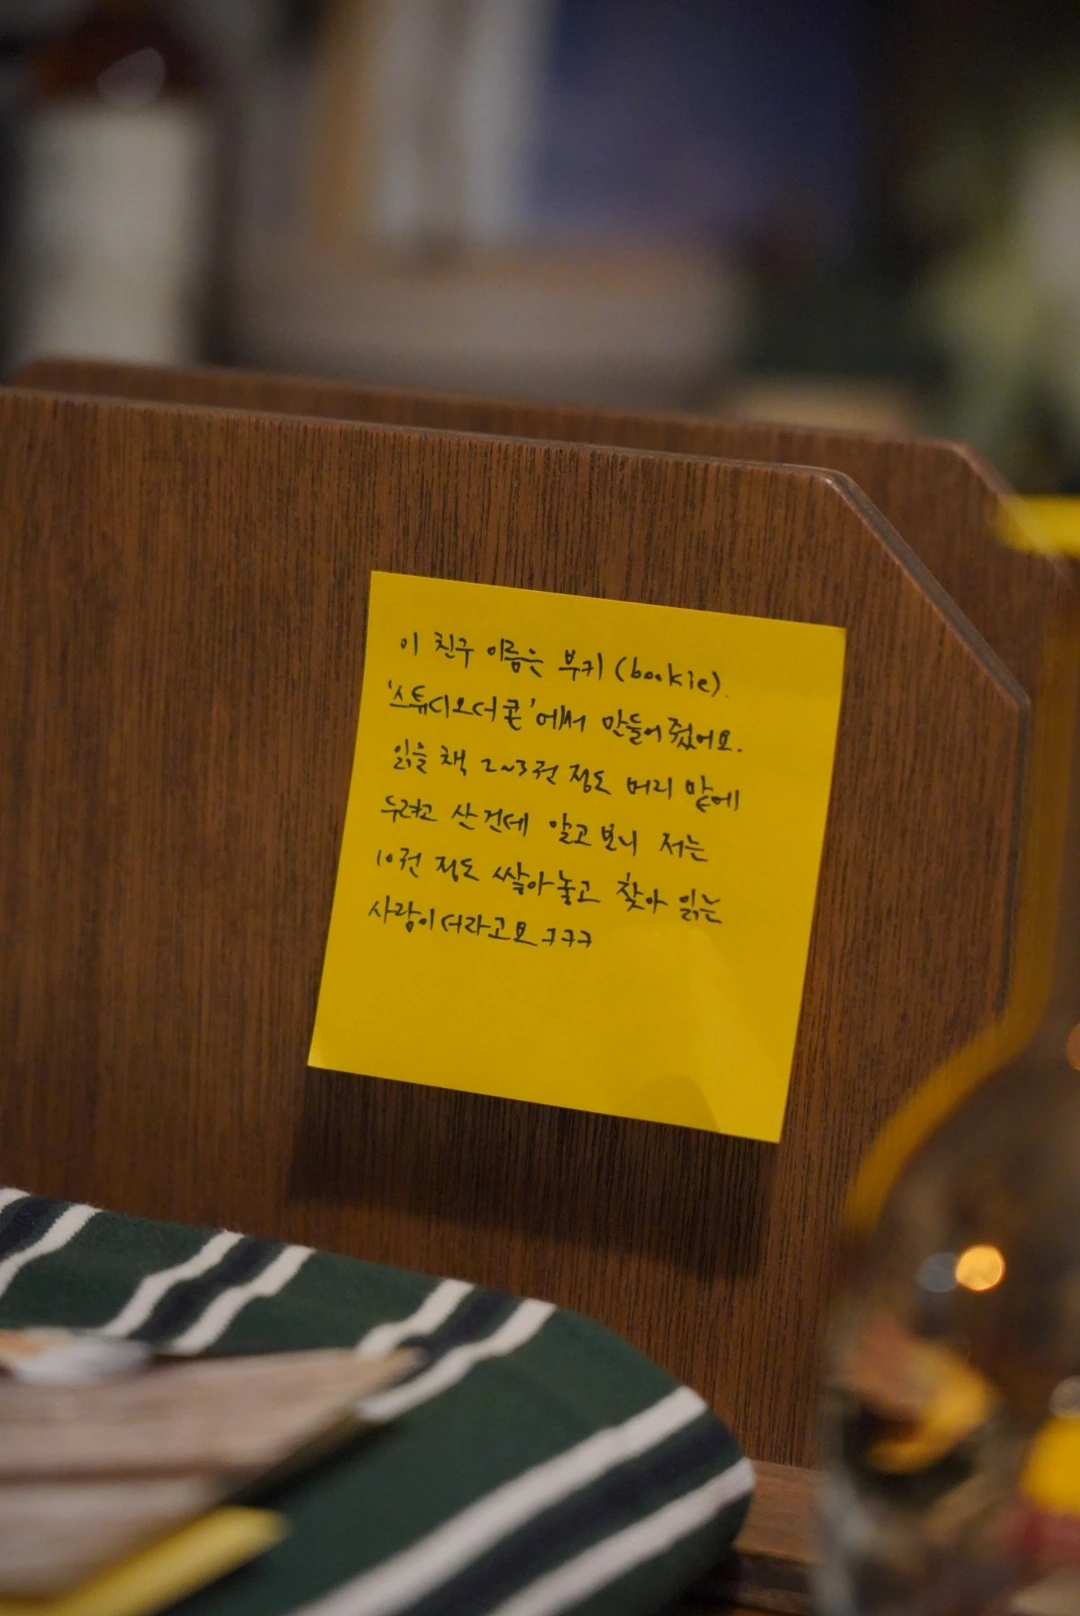 이 친구 이름은 부키 (bookie).
'스튜디오더콘'에서 만들어줬어요.
읽을 책 2~3권 정도 머리 맡에
두려고 산건데 알고보니 저는
10권 정도 쌓아놓고 찾아 읽는
사람이더라고요 ㅋㅋㅋ